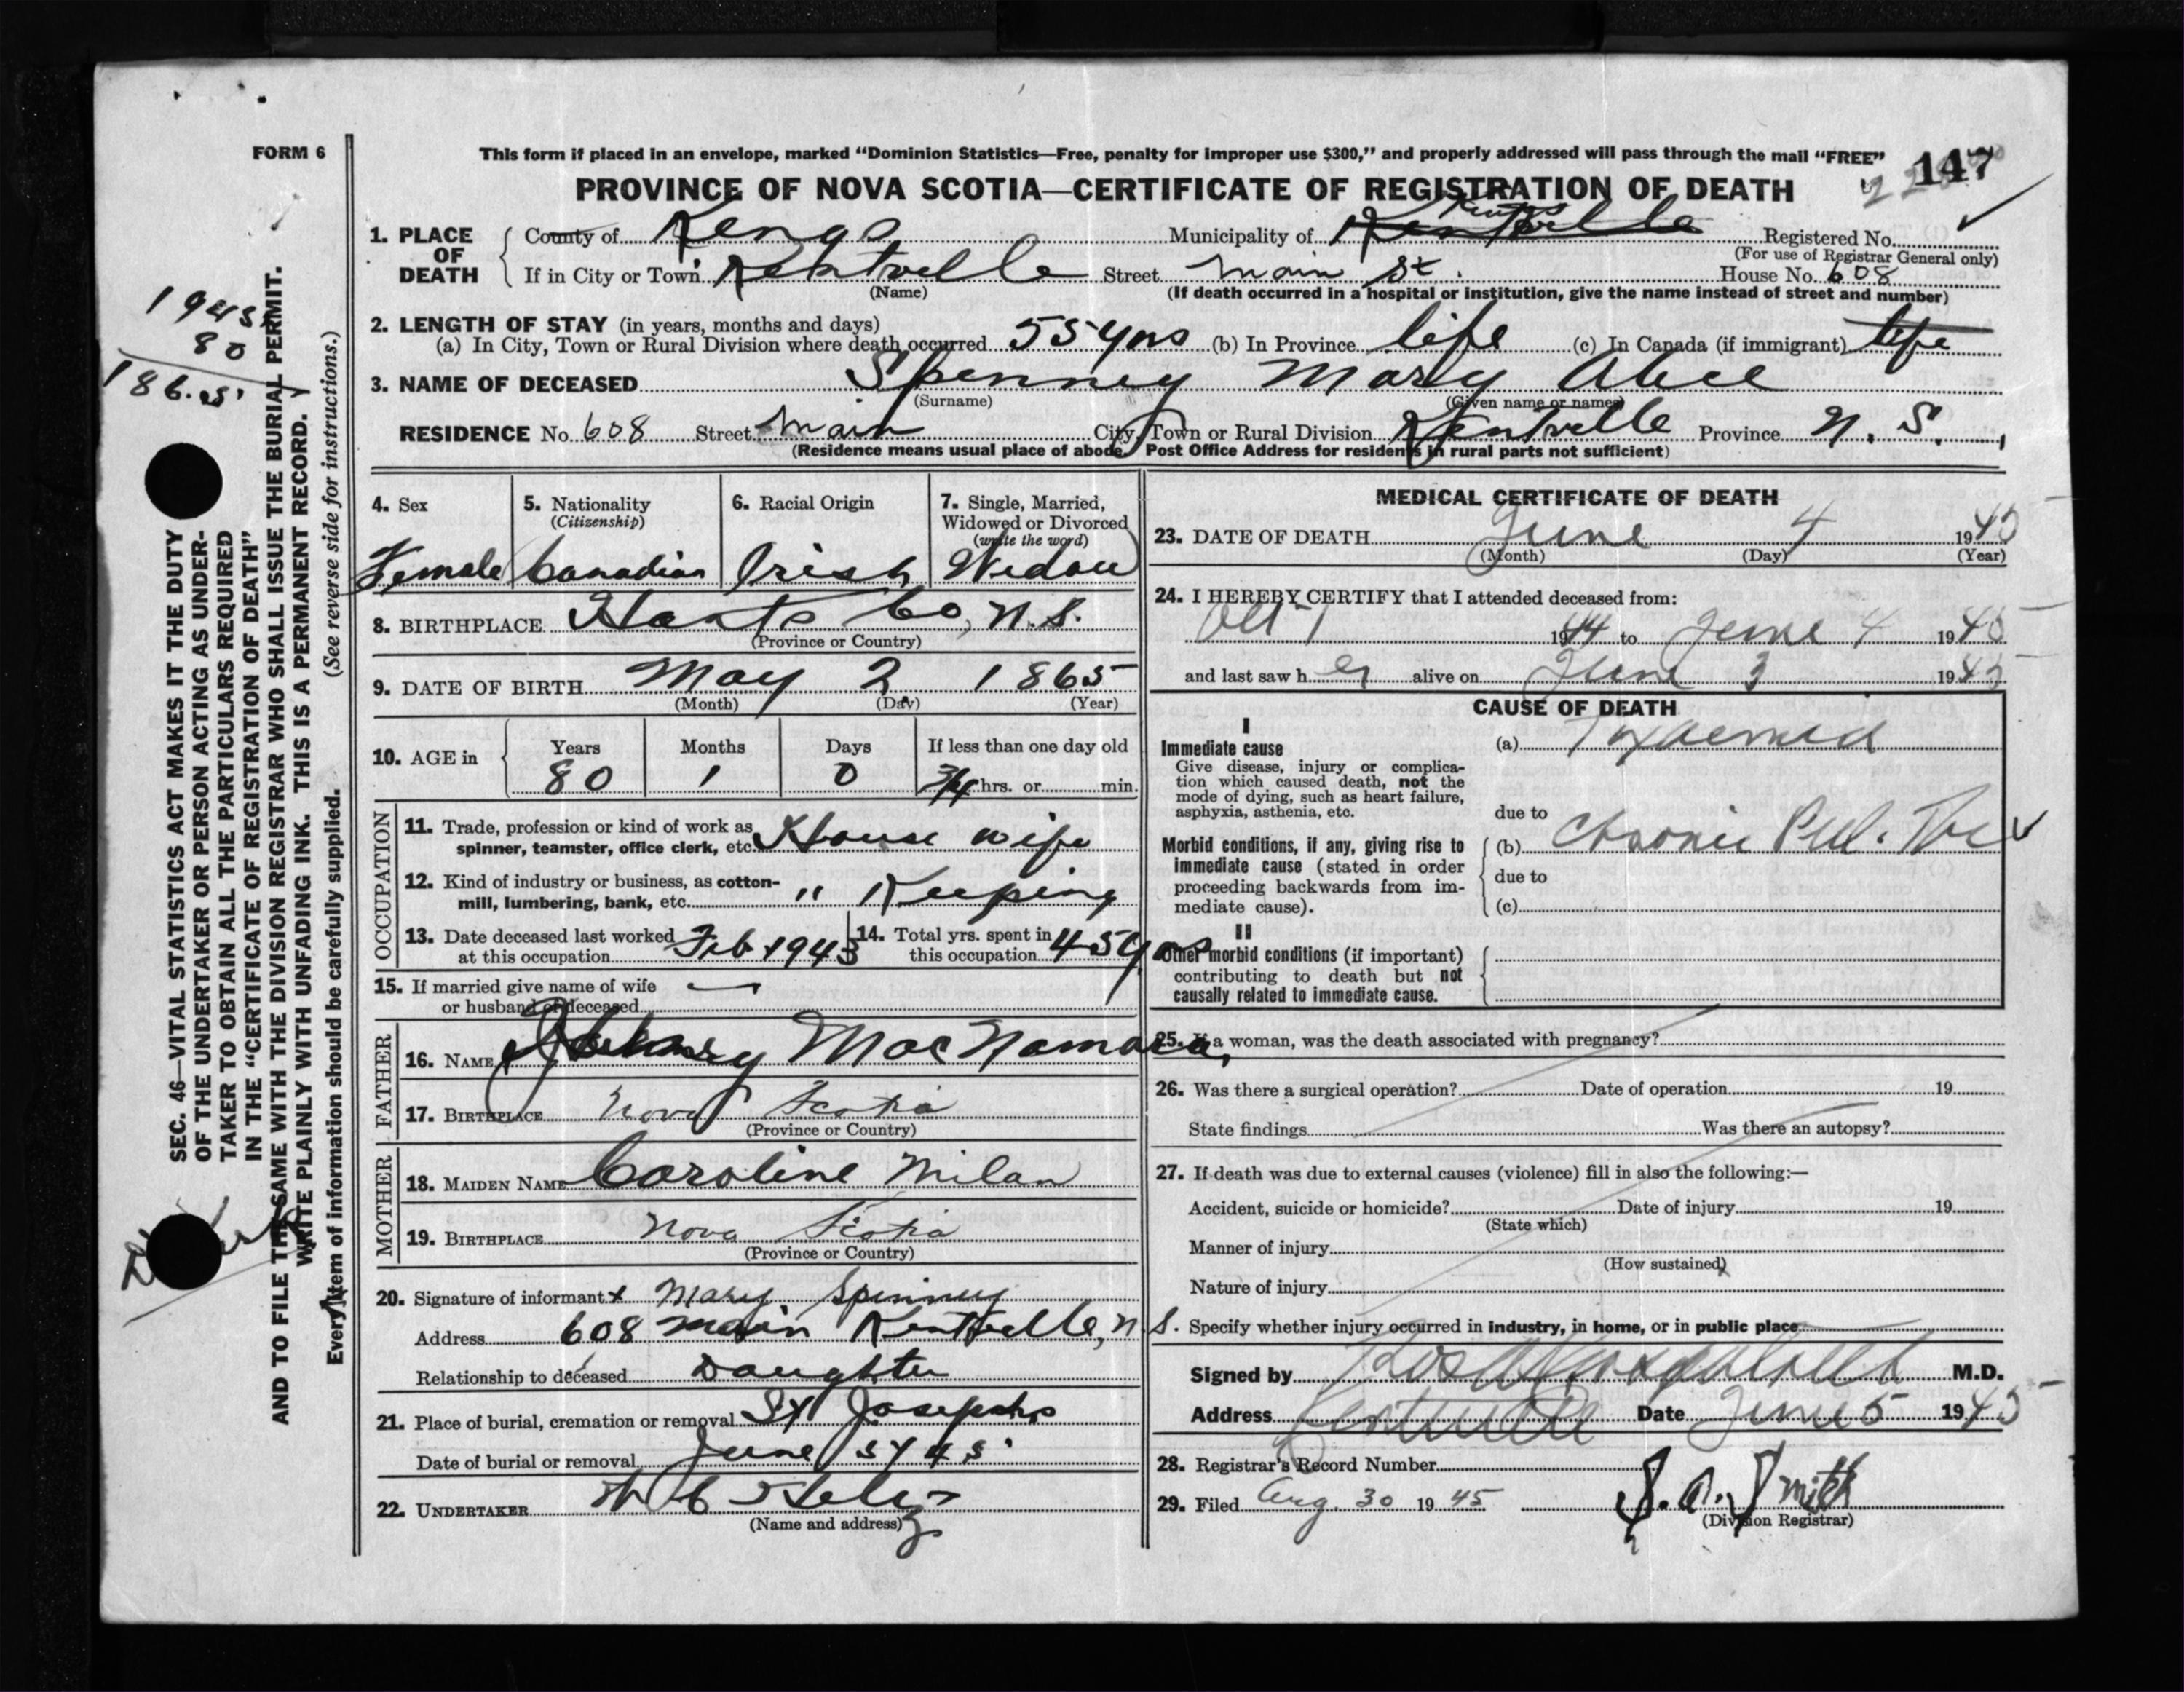 FORM 6
This form if placed in an envelope, marked “Dominion Statistics—Free, penalty for improper use $300,” and properly addressed will pass through the mail “FREE”
147
PROVINCE OF NOVA SCOTIA—CERTIFICATE OF REGISTRATION OF DEATH
1. PLACE OF DEATH
County of Kings Municipality of Kentville Kings Registered No.
(For use of Registrar General only)
If in City or Town Kentville Street Main St. House No. 608
(Name) (If death occurred in a hospital or institution, give the name instead of street and number)
2. LENGTH OF STAY (in years, months and days)
(a) In City, Town or Rural Division where death occurred 55 yrs (b) In Province life (c) In Canada (if immigrant) life
3. NAME OF DECEASED Spinney Mary Alice
(Surname) (Given name or names)
RESIDENCE No. 608 Street Main City, Town or Rural Division Kentville Province N. S.
(Residence means usual place of abode. Post Office Address for residents in rural parts not sufficient)
4. Sex 5. Nationality (Citizenship) 6. Racial Origin 7. Single, Married, Widowed or Divorced (write the word)
Female Canadian Irish Widow
8. BIRTHPLACE Hants Co, N.S.
(Province or Country)
9. DATE OF BIRTH May 2 1865
(Month) (Day) (Year)
10. AGE in Years Months Days If less than one day old
80 1 0 hrs. or min.
OCCUPATION
11. Trade, profession or kind of work as spinner, teamster, office clerk, etc. House wife
12. Kind of industry or business, as cotton-mill, lumbering, bank, etc. " Keeping
13. Date deceased last worked at this occupation Feb 1943 14. Total yrs. spent in this occupation 45 yrs
15. If married give name of wife or husband of deceased —
FATHER
16. NAME MacNamara,
17. BIRTHPLACE Nova Scotia
(Province or Country)
MOTHER
18. MAIDEN NAME Caroline Milan
19. BIRTHPLACE Nova Scotia
(Province or Country)
20. Signature of informant x Mary Spinney
Address 608 Main Kentville, N S.
Relationship to deceased Daughter
21. Place of burial, cremation or removal St Josephs
Date of burial or removal June 5/45
22. UNDERTAKER
(Name and address)
MEDICAL CERTIFICATE OF DEATH
23. DATE OF DEATH June 4 1945
(Month) (Day) (Year)
24. I HEREBY CERTIFY that I attended deceased from:
Oct 1 1944 to June 4 1945
and last saw her alive on June 3 1945
CAUSE OF DEATH
I
Immediate cause (a) Toxaemia
Give disease, injury or complica-
tion which caused death, not the
mode of dying, such as heart failure,
asphyxia, asthenia, etc. due to
Morbid conditions, if any, giving rise to (b) Chronic Pul. Tbc
immediate cause (stated in order due to
proceeding backwards from im-
mediate cause). (c)
II
Other morbid conditions (if important)
contributing to death but not
causally related to immediate cause.
25. If a woman, was the death associated with pregnancy?
26. Was there a surgical operation? Date of operation 19
State findings Was there an autopsy?
27. If death was due to external causes (violence) fill in also the following:—
Accident, suicide or homicide? Date of injury 19
(State which)
Manner of injury
(How sustained)
Nature of injury
Specify whether injury occurred in industry, in home, or in public place
Signed by M.D.
Address Kentville Date June 5 1945
28. Registrar's Record Number
29. Filed Aug. 30 1945 Smith
(Division Registrar)
1945
80
1865
SEC. 46—VITAL STATISTICS ACT MAKES IT THE DUTY
OF THE UNDERTAKER OR PERSON ACTING AS UNDER-
TAKER TO OBTAIN ALL THE PARTICULARS REQUIRED
IN THE “CERTIFICATE OF REGISTRATION OF DEATH”
AND TO FILE THE SAME WITH THE DIVISION REGISTRAR WHO SHALL ISSUE THE BURIAL PERMIT.
WRITE PLAINLY WITH UNFADING INK. THIS IS A PERMANENT RECORD.
Every item of information should be carefully supplied. (See reverse side for instructions.)